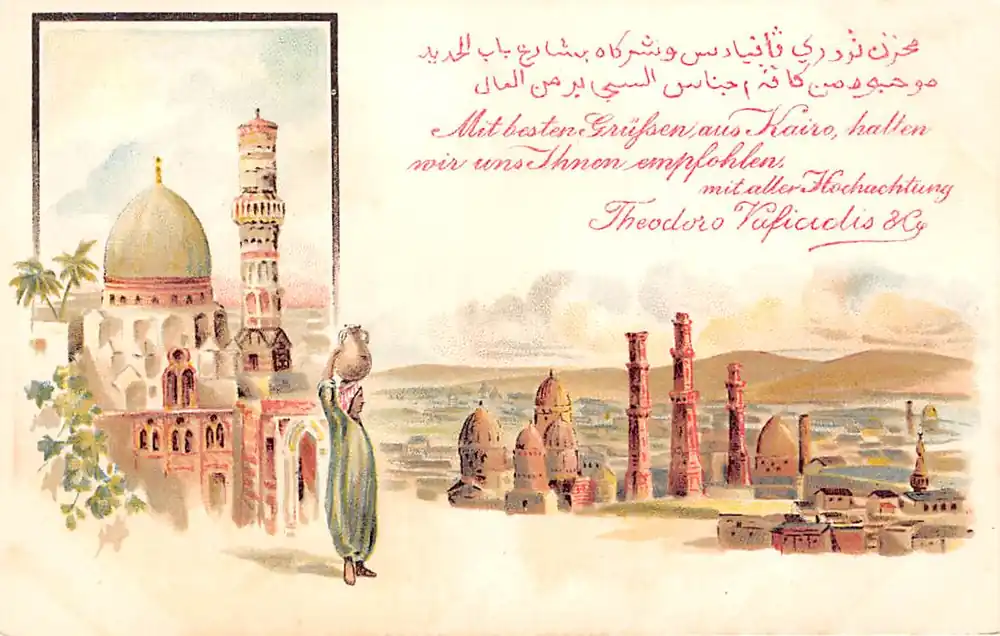 مخزن تودري ڤافيادس وشركاه بشارع باب الحديد
من كافة اجناس العال
Mit besten Grüßen aus Kairo, halten
wir uns Ihnen empfohlen.
mit aller Hochachtung
Theodoro Vafiadis & Cy